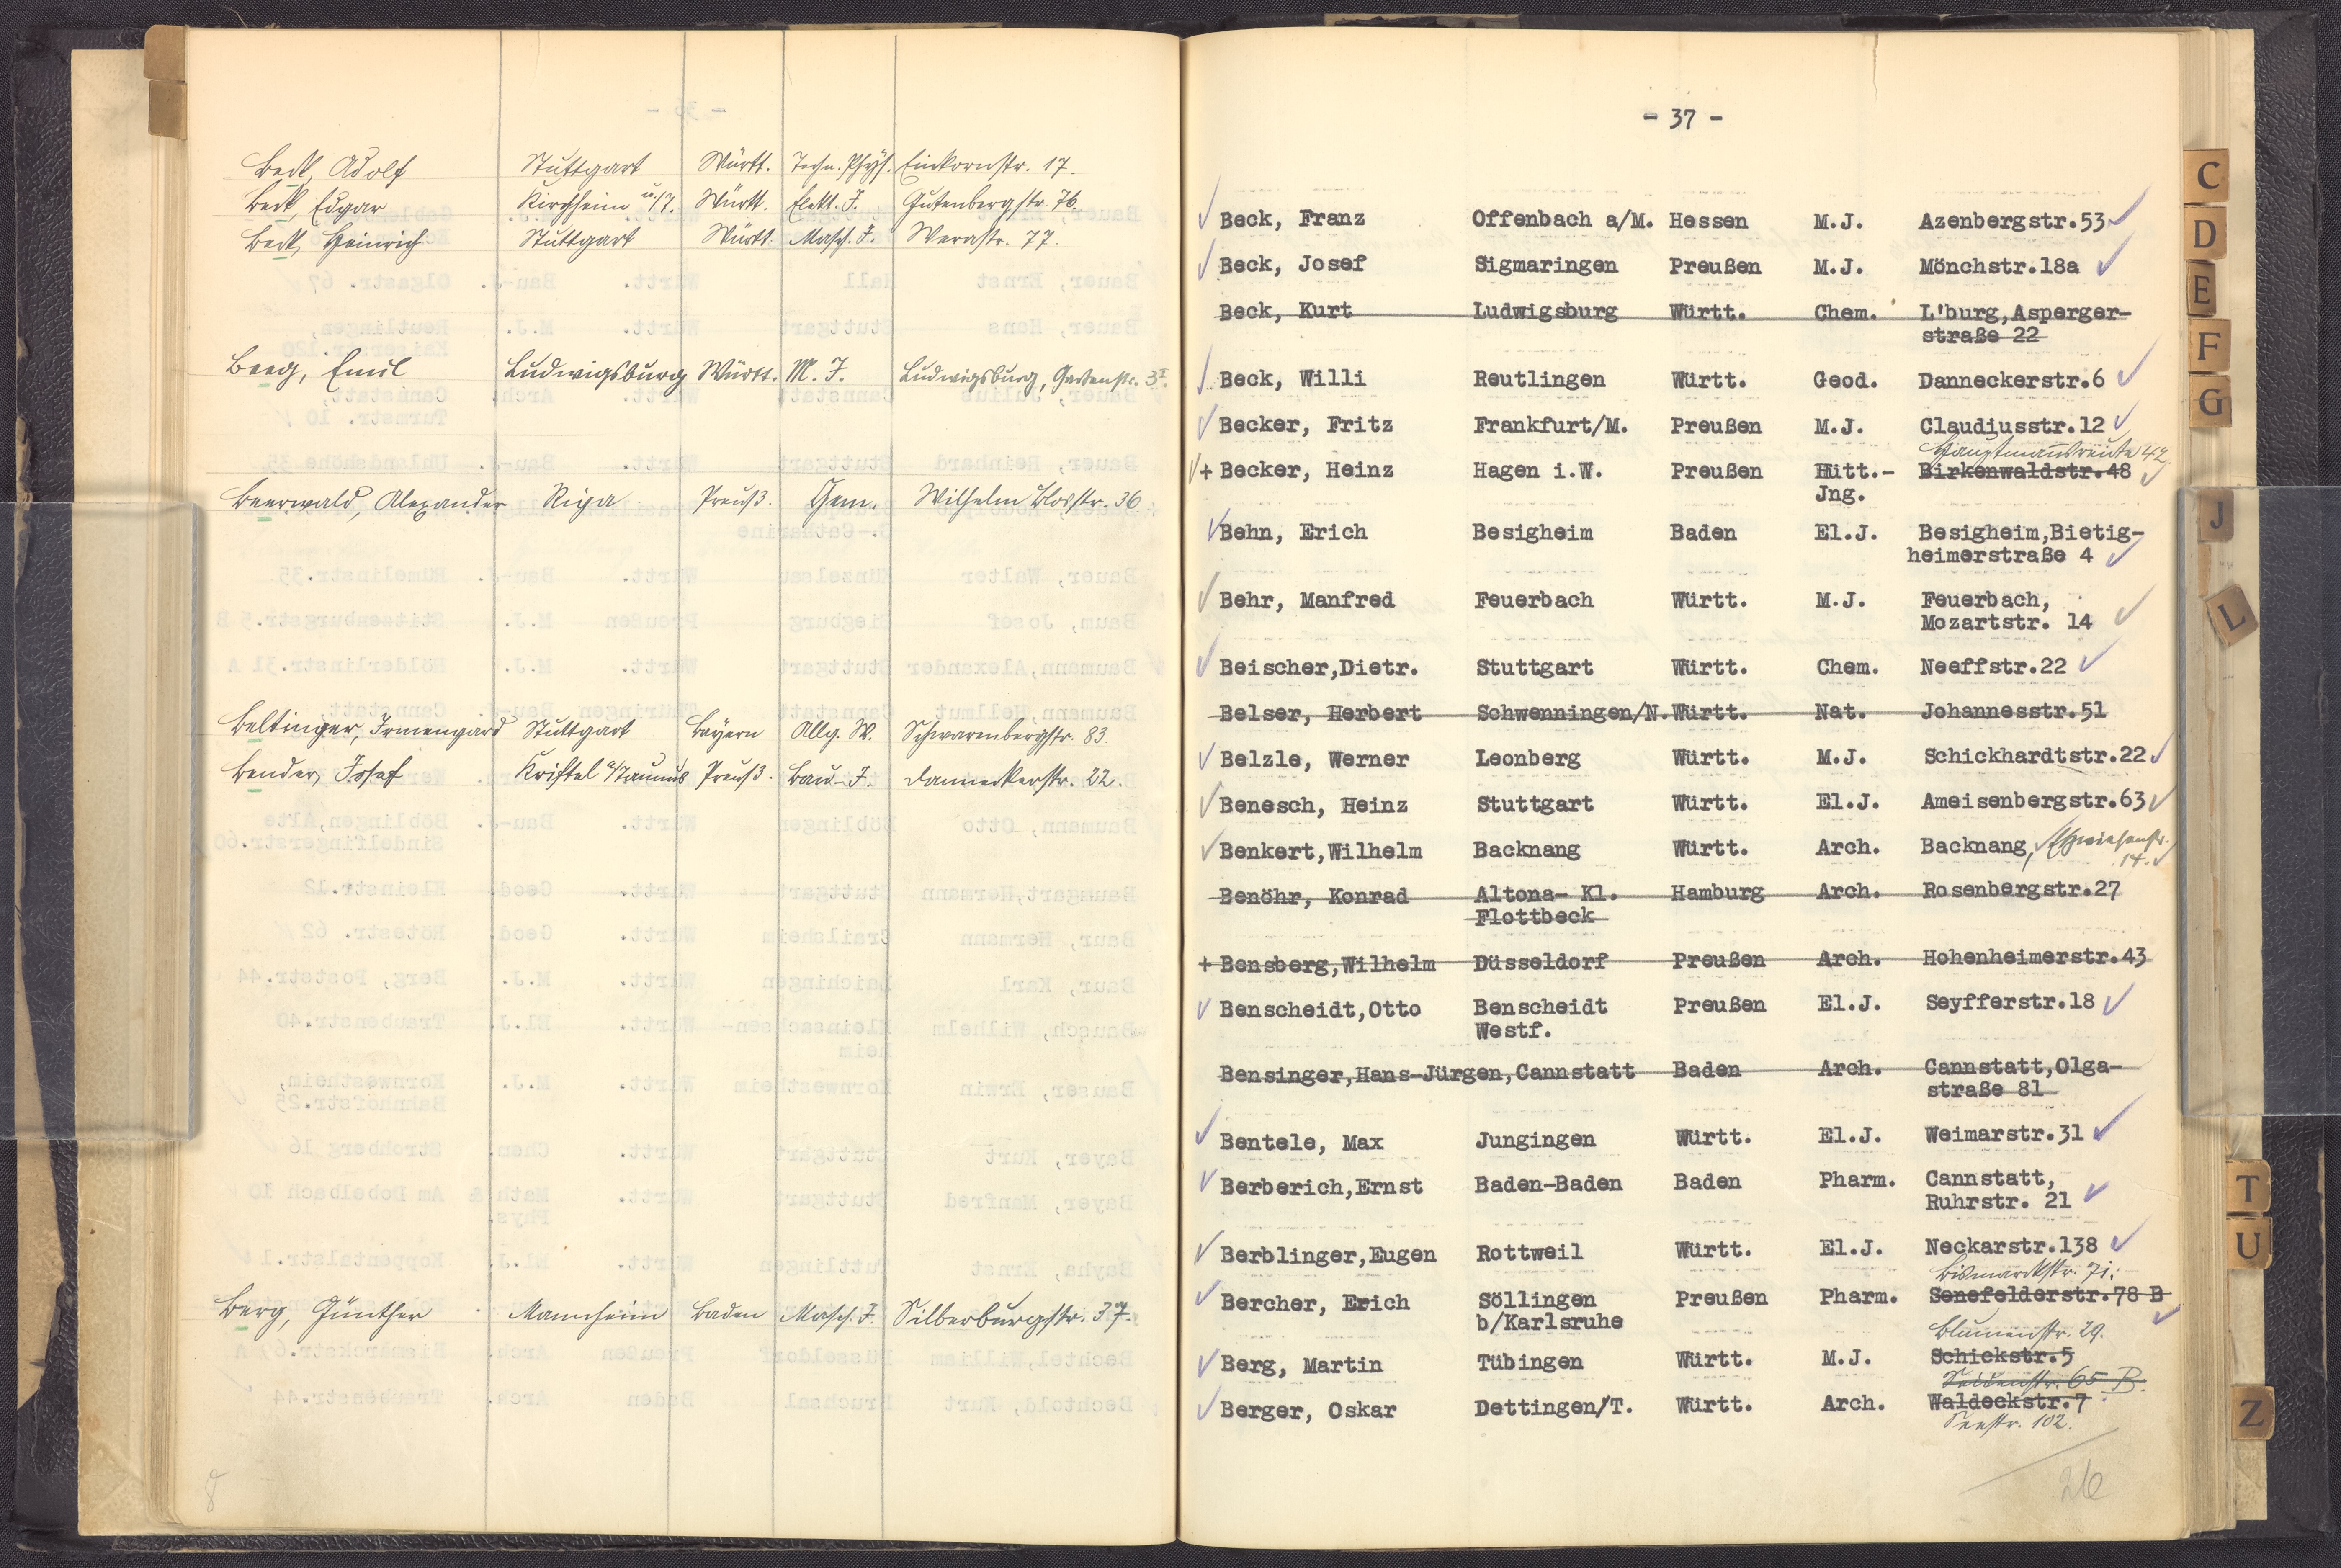 Beck, Adolf Stuttgart Württ. Techn. Phys. Einkornstr. 17.
Beck, Edgar Kirchheim u/T. Württ. Elekt. I. Gutenbergstr. 76.
Beck, Heinrich Stuttgart Württ. Masch. I. Werastr. 77.
Beeg, Emil Ludwigsburg Württ. M. I. Ludwigsburg, Gartenstr. 3
Beerwald, Alexander Riga Preuß. Chem. Wilhelm Blosstr. 36
Beltinger, Irmengard Stuttgart Bayern Allg. W. Schwarenbergstr. 83.
Bender, Josef Kriftel a/Taunus Preuß. Bau-I. Danneckerstr. 22.
Berg, Günther Mannheim Baden Masch. I. Silberburgstr. 37.
8
- 37 -
Beck, Franz Offenbach a/M. Hessen M.J. Azenbergstr.53
Beck, Josef Sigmaringen Preußen M.J. Mönchstr.18a
Beck, Kurt Ludwigsburg Württ. Chem. L'burg,Asperger-
straße 22
Beck, Willi Reutlingen Württ. Geod. Danneckerstr.6
Becker, Fritz Frankfurt/M. Preußen M.J. Claudiusstr.12
Hauptmannsreute 42
+ Becker, Heinz Hagen i.W. Preußen Hütt.- Birkenwaldstr.48
Jng.
Behn, Erich Besigheim Baden El.J. Besigheim,Bietig-
heimerstraße 4
Behr, Manfred Feuerbach Württ. M.J. Feuerbach,
Mozartstr. 14
Beischer,Dietr. Stuttgart Württ. Chem. Neeffstr.22
Belser, Herbert Schwenningen/N.Württ. Nat. Johannesstr.51
Belzle, Werner Leonberg Württ. M.J. Schickhardtstr.22
Benesch, Heinz Stuttgart Württ. El.J. Ameisenbergstr.63
Benkert,Wilhelm Backnang Württ. Arch. Backnang,
14.
Benöhr, Konrad Altona- Kl. Hamburg Arch. Rosenbergstr.27
Flottbeck
+ Bensberg,Wilhelm Düsseldorf Preußen Arch. Hohenheimerstr.43
Benscheidt,Otto Benscheidt Preußen El.J. Seyfferstr.18
Westf.
Bensinger,Hans-Jürgen,Cannstatt Baden Arch. Cannstatt,Olga-
straße 81
Bentele, Max Jungingen Württ. El.J. Weimarstr.31
Berberich,Ernst Baden-Baden Baden Pharm. Cannstatt,
Ruhrstr. 21
Berblinger,Eugen Rottweil Württ. El.J. Neckarstr.138
Bismarckstr. 71.
Bercher, Erich Söllingen Preußen Pharm. Senefelderstr.78 B
b/Karlsruhe
Blumenstr. 29.
Berg, Martin Tübingen Württ. M.J. Schickstr.5
Seidenstr. 65 B.
Berger, Oskar Dettingen/T. Württ. Arch. Waldeckstr.7
Seestr. 102.
26
C
D
E
F
G
J
L
T
U
Z